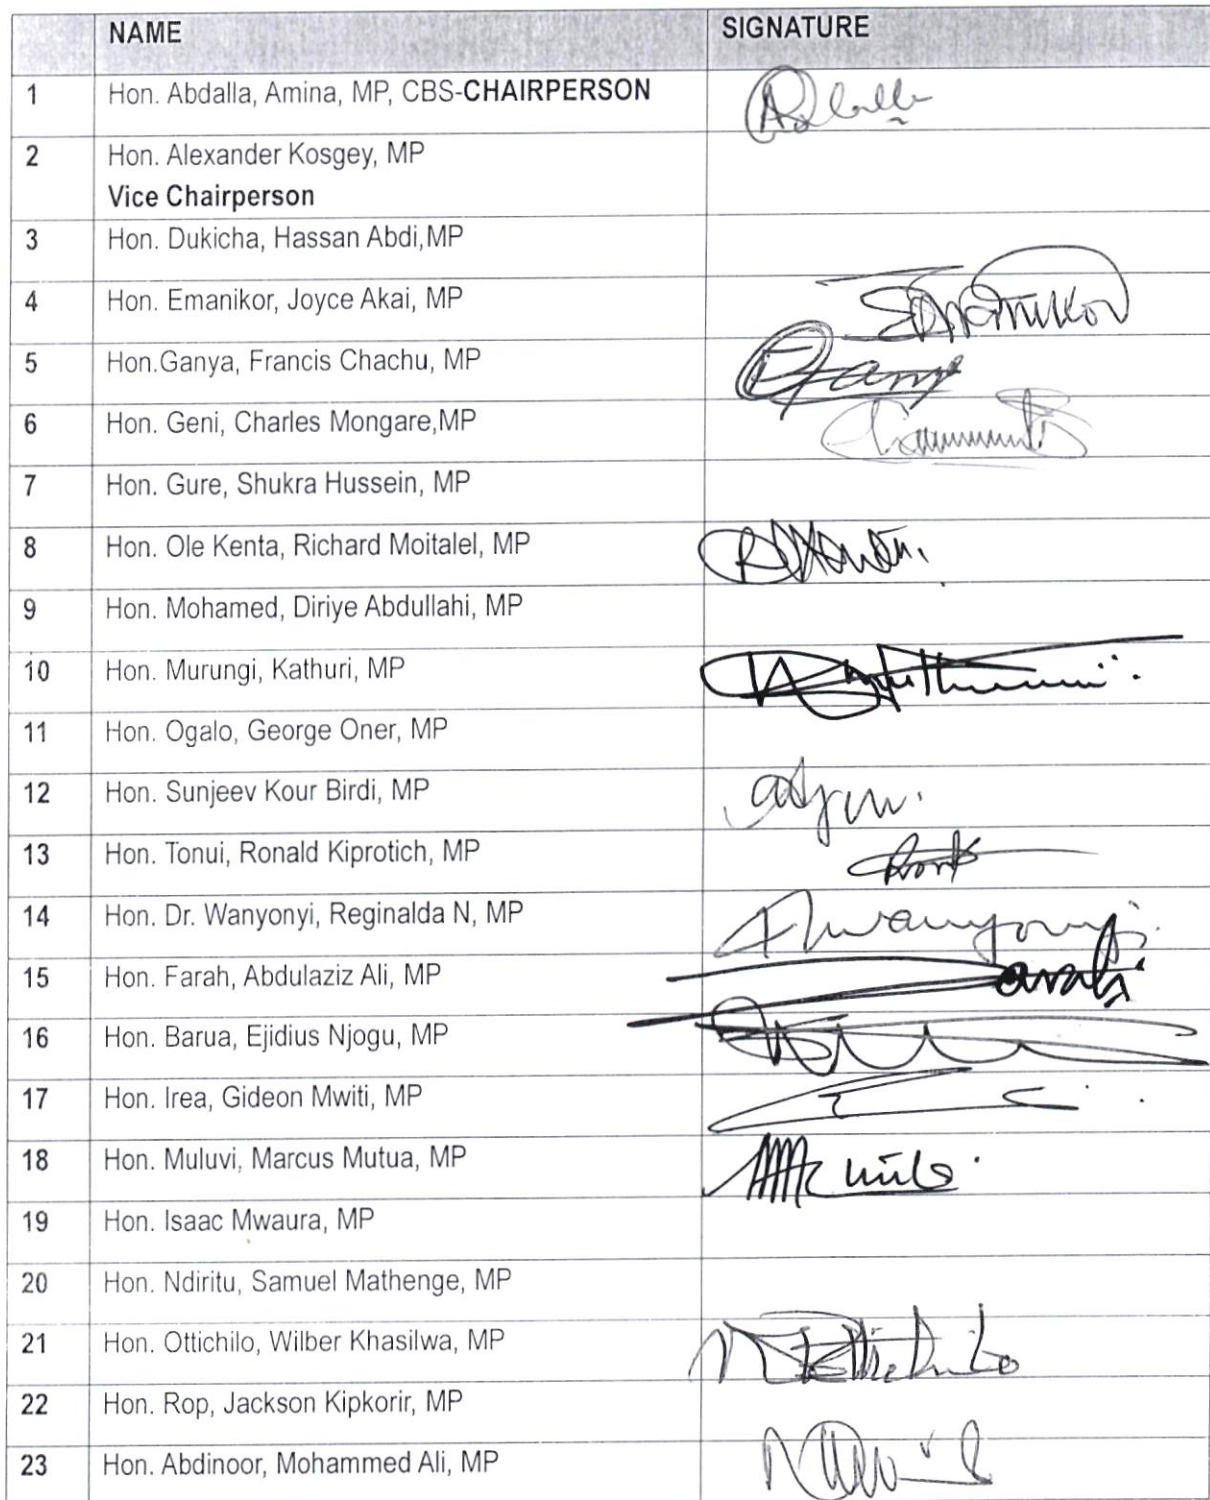 NAME SIGNATURE
1 Hon. Abdalla, Amina, MP, CBS-CHAIRPERSON
2 Hon. Alexander Kosgey, MP
Vice Chairperson
3 Hon. Dukicha, Hassan Abdi,MP
4 Hon. Emanikor, Joyce Akai, MP Emanikor
5 Hon.Ganya, Francis Chachu, MP
6 Hon. Geni, Charles Mongare,MP
7 Hon. Gure, Shukra Hussein, MP
8 Hon. Ole Kenta, Richard Moitalel, MP
9 Hon. Mohamed, Diriye Abdullahi, MP
10 Hon. Murungi, Kathuri, MP
11 Hon. Ogalo, George Oner, MP
12 Hon. Sunjeev Kour Birdi, MP
13 Hon. Tonui, Ronald Kiprotich, MP
14 Hon. Dr. Wanyonyi, Reginalda N, MP Rwanyonyi
15 Hon. Farah, Abdulaziz Ali, MP
16 Hon. Barua, Ejidius Njogu, MP
17 Hon. Irea, Gideon Mwiti, MP
18 Hon. Muluvi, Marcus Mutua, MP
19 Hon. Isaac Mwaura, MP
20 Hon. Ndiritu, Samuel Mathenge, MP
21 Hon. Ottichilo, Wilber Khasilwa, MP
22 Hon. Rop, Jackson Kipkorir, MP
23 Hon. Abdinoor, Mohammed Ali, MP